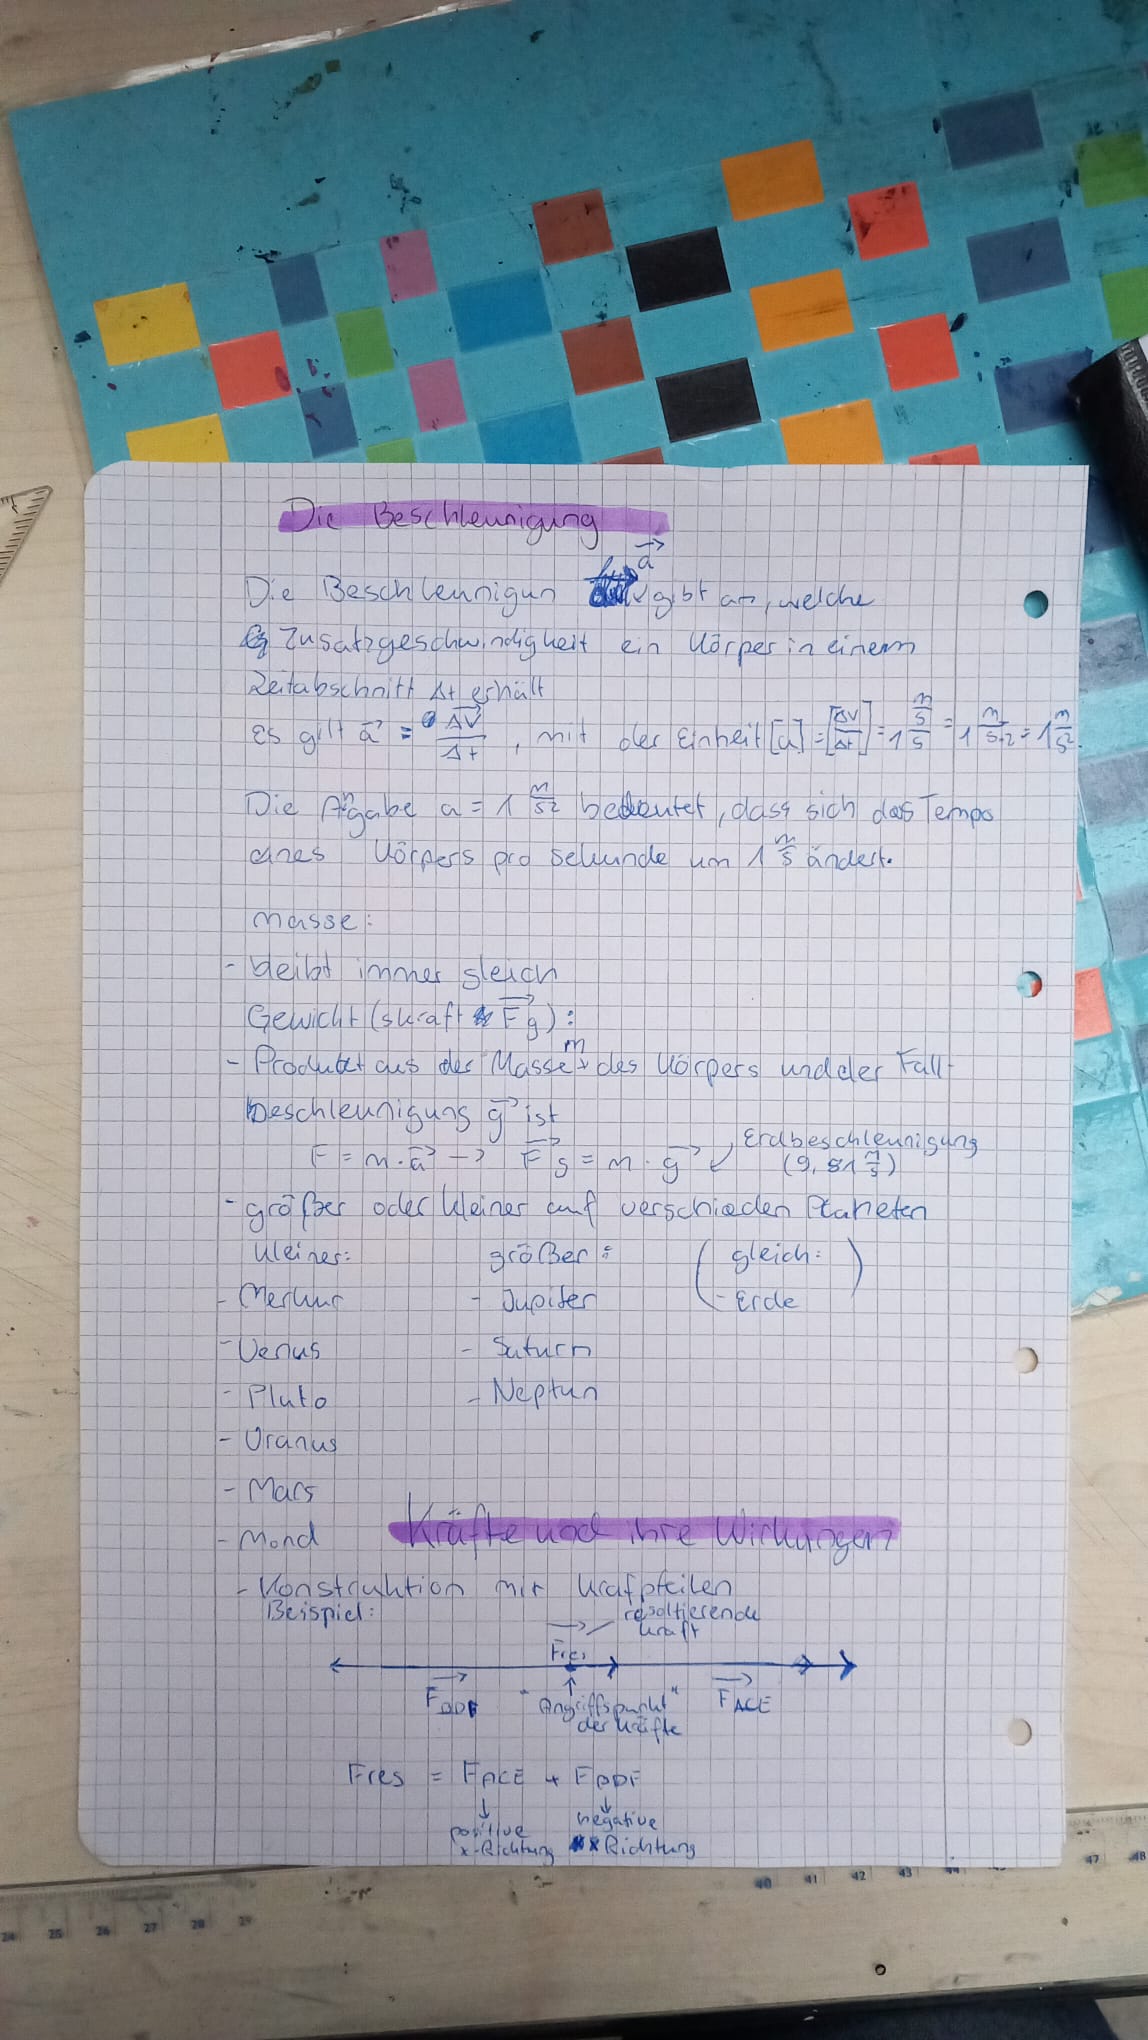 Die Beschleunigung
Die Beschleunigun a⃗ gibt an, welche
Zusatzgeschwindigkeit ein Körper in einem
Zeitabschnitt Δt erhält
Es gilt a⃗ = Δv⃗/Δt , mit der Einheit [a] = [Δv/Δt] = 1 m/s/s = 1 m/s·2 = 1 m/s².
Die Angabe a = 1 m/s2 bedeutet, dass sich das Tempo
eines Körpers pro Sekunde um 1 m/s ändert.
Masse:
- bleibt immer gleich
Gewicht(skraft F⃗g):
- Produkt aus der Masse m des Körpers und der Fall-
beschleunigung g⃗ ist
F = m · a⃗ → F⃗g = m · g⃗ Erdbeschleunigung
(9,81 m/s)
- größer oder kleiner auf verschieden Planeten
kleiner: größer: (gleich:
- Merkur - Jupiter - Erde)
- Venus - Saturn
- Pluto - Neptun
- Uranus
- Mars
- Mond
Kräfte und ihre Wirkungen
- Konstruktion mit Krafpfeilen
Beispiel: resoltierende
Kraft
F⃗res
F⃗ "Angriffspunkt" F⃗ACE
der Kräfte
Fres = FACE +
positive negative
x-Richtung x Richtung
24 25 26 27 28 29 40 41 42 43 44 47 48